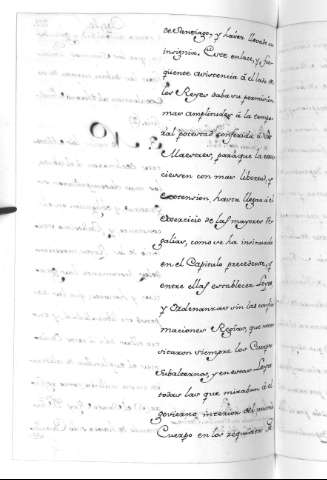 de Santiago, y haver llevado su
insignia. Este enlace, y fre-
quente asistencia á el lado de
los Reyes daba su permision
mas amplitudes á la tempo-
ral potestad conferida á los
Maestres, para que la exer-
ciessen con mas libertad, y
extension, hasta llegar á el
exercicio de las mayores Re-
galias, como se ha insinuado
en el Capitulo precedente, y
entre ellas establecer Leyes
y Ordenanzas sin las confir-
maciones Regias, que nece-
sitaron siempre los Cuerpos
subalternos, y en estas Leyes
todas las que miraban á el
govierno interior del mismo
Cuerpo en los requisitos